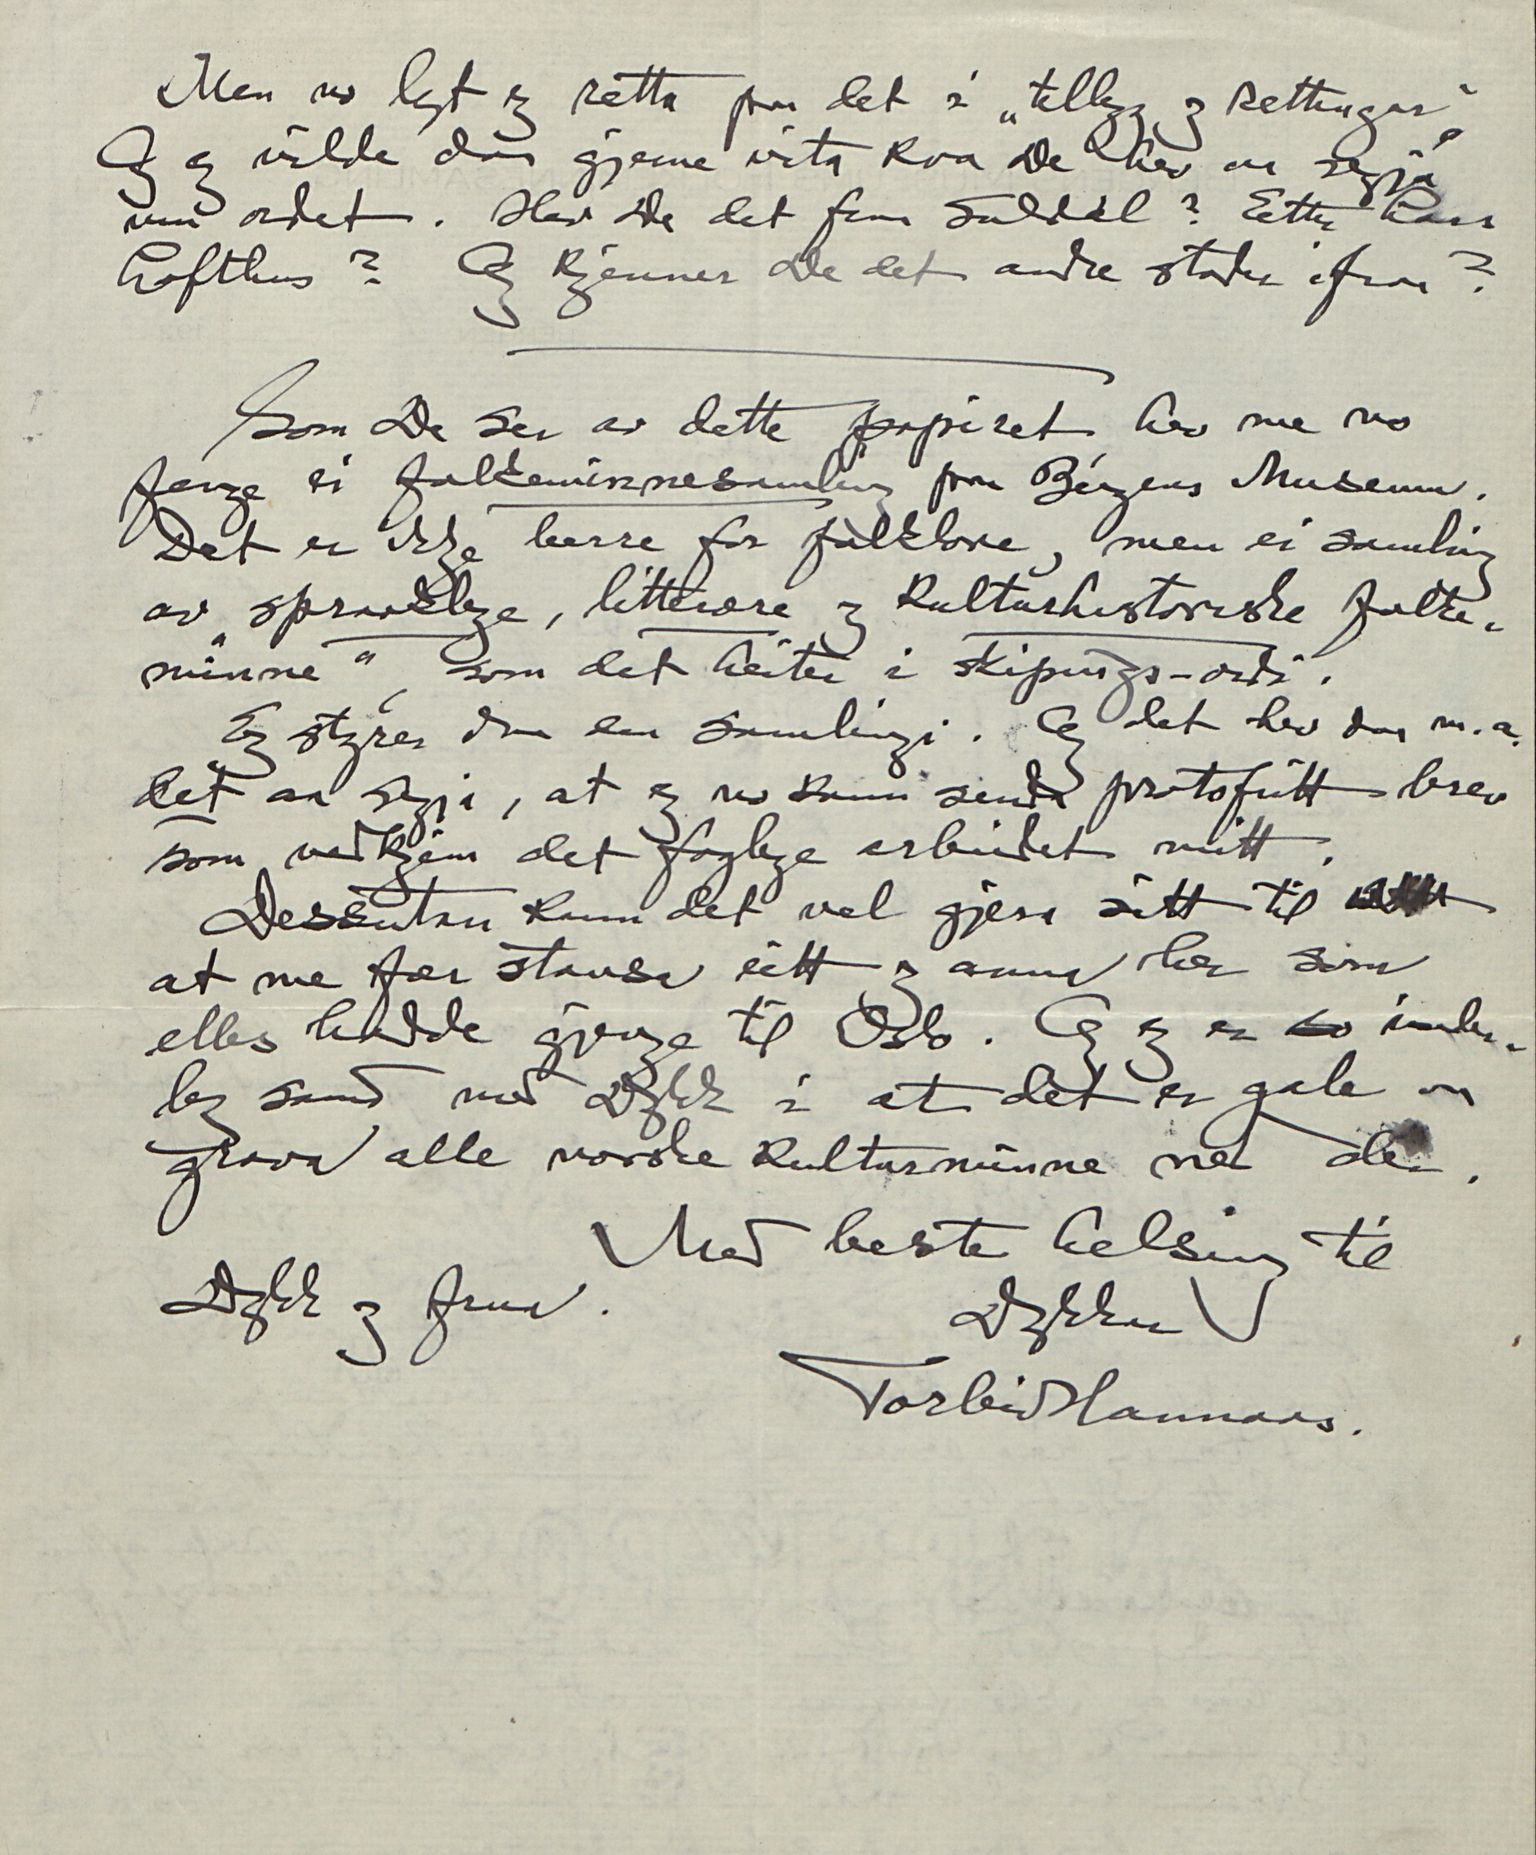 Men no lyt eg retta paa det i „tillegg og rettingar“.
Og eg vilde daa gjerne vita kva De hev aa segja
um ordet. Hev De det fraa Suldal? Etter Hans
Lofthus? Og kjenner De det andre stader ifraa?
Som De ser av dette papiret hev me no
fenge ei folkeminnesamling paa Bergens Museum.
Det er ikkje berre for folklore, men ei samling
av „spraaklege, litterære og kulturhistoriske folke-
minne“, som det heiter i skipings-ordi.
Eg styrer daa den samlingi. Og det hev daa m.a.
det aa segja, at eg no kann senda portofritt brev
som vedkjem det faglege arbeidet mitt.
Dessutan kann det vel gjera sitt til
at me fær stansa eitt og anna her som
elles hadde gjenge til Oslo. Og eg er so inder-
leg samd med Dykk i at det er gale aa
grava alle norske kulturminne ned der.
Med beste helsing til
Dykk og frua.
Dykkar
Torleiv Hannaas.